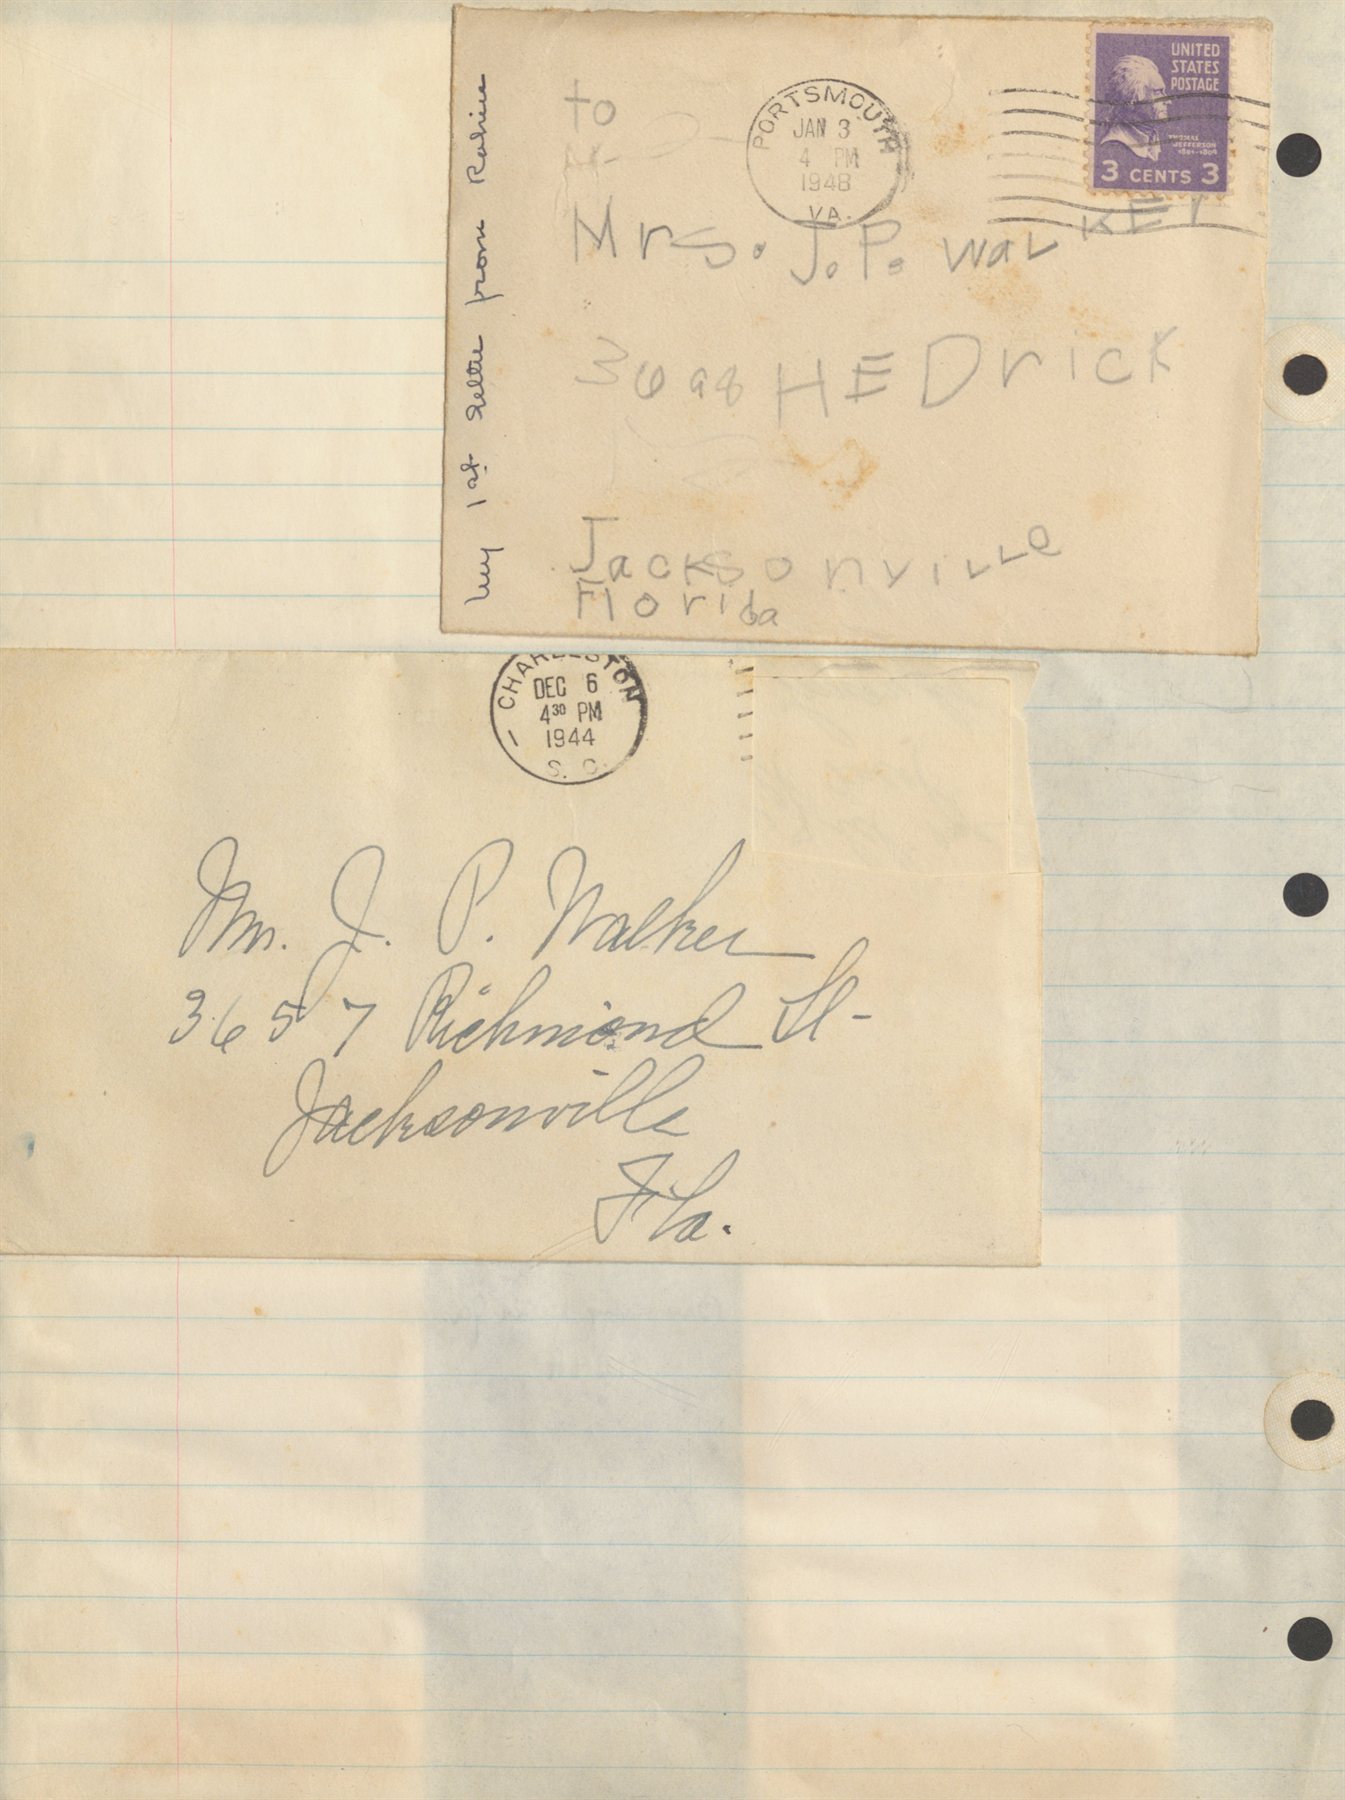 My 1st letter from Robin
to
Mrs. J. P. WALKEr
3698 HEDrick
Jacksonville
Florida
PORTSMOUTH
JAN 3
4 PM
1948
VA.
UNITED
STATES
POSTAGE
THOMAS
JEFFERSON
1801-1809
3 CENTS 3
CHARLESTON
DEC 6
4 30 PM
1944
S. C.
Mrs. J. P. Walker
3657 Richmond St-
Jacksonville
Fla.